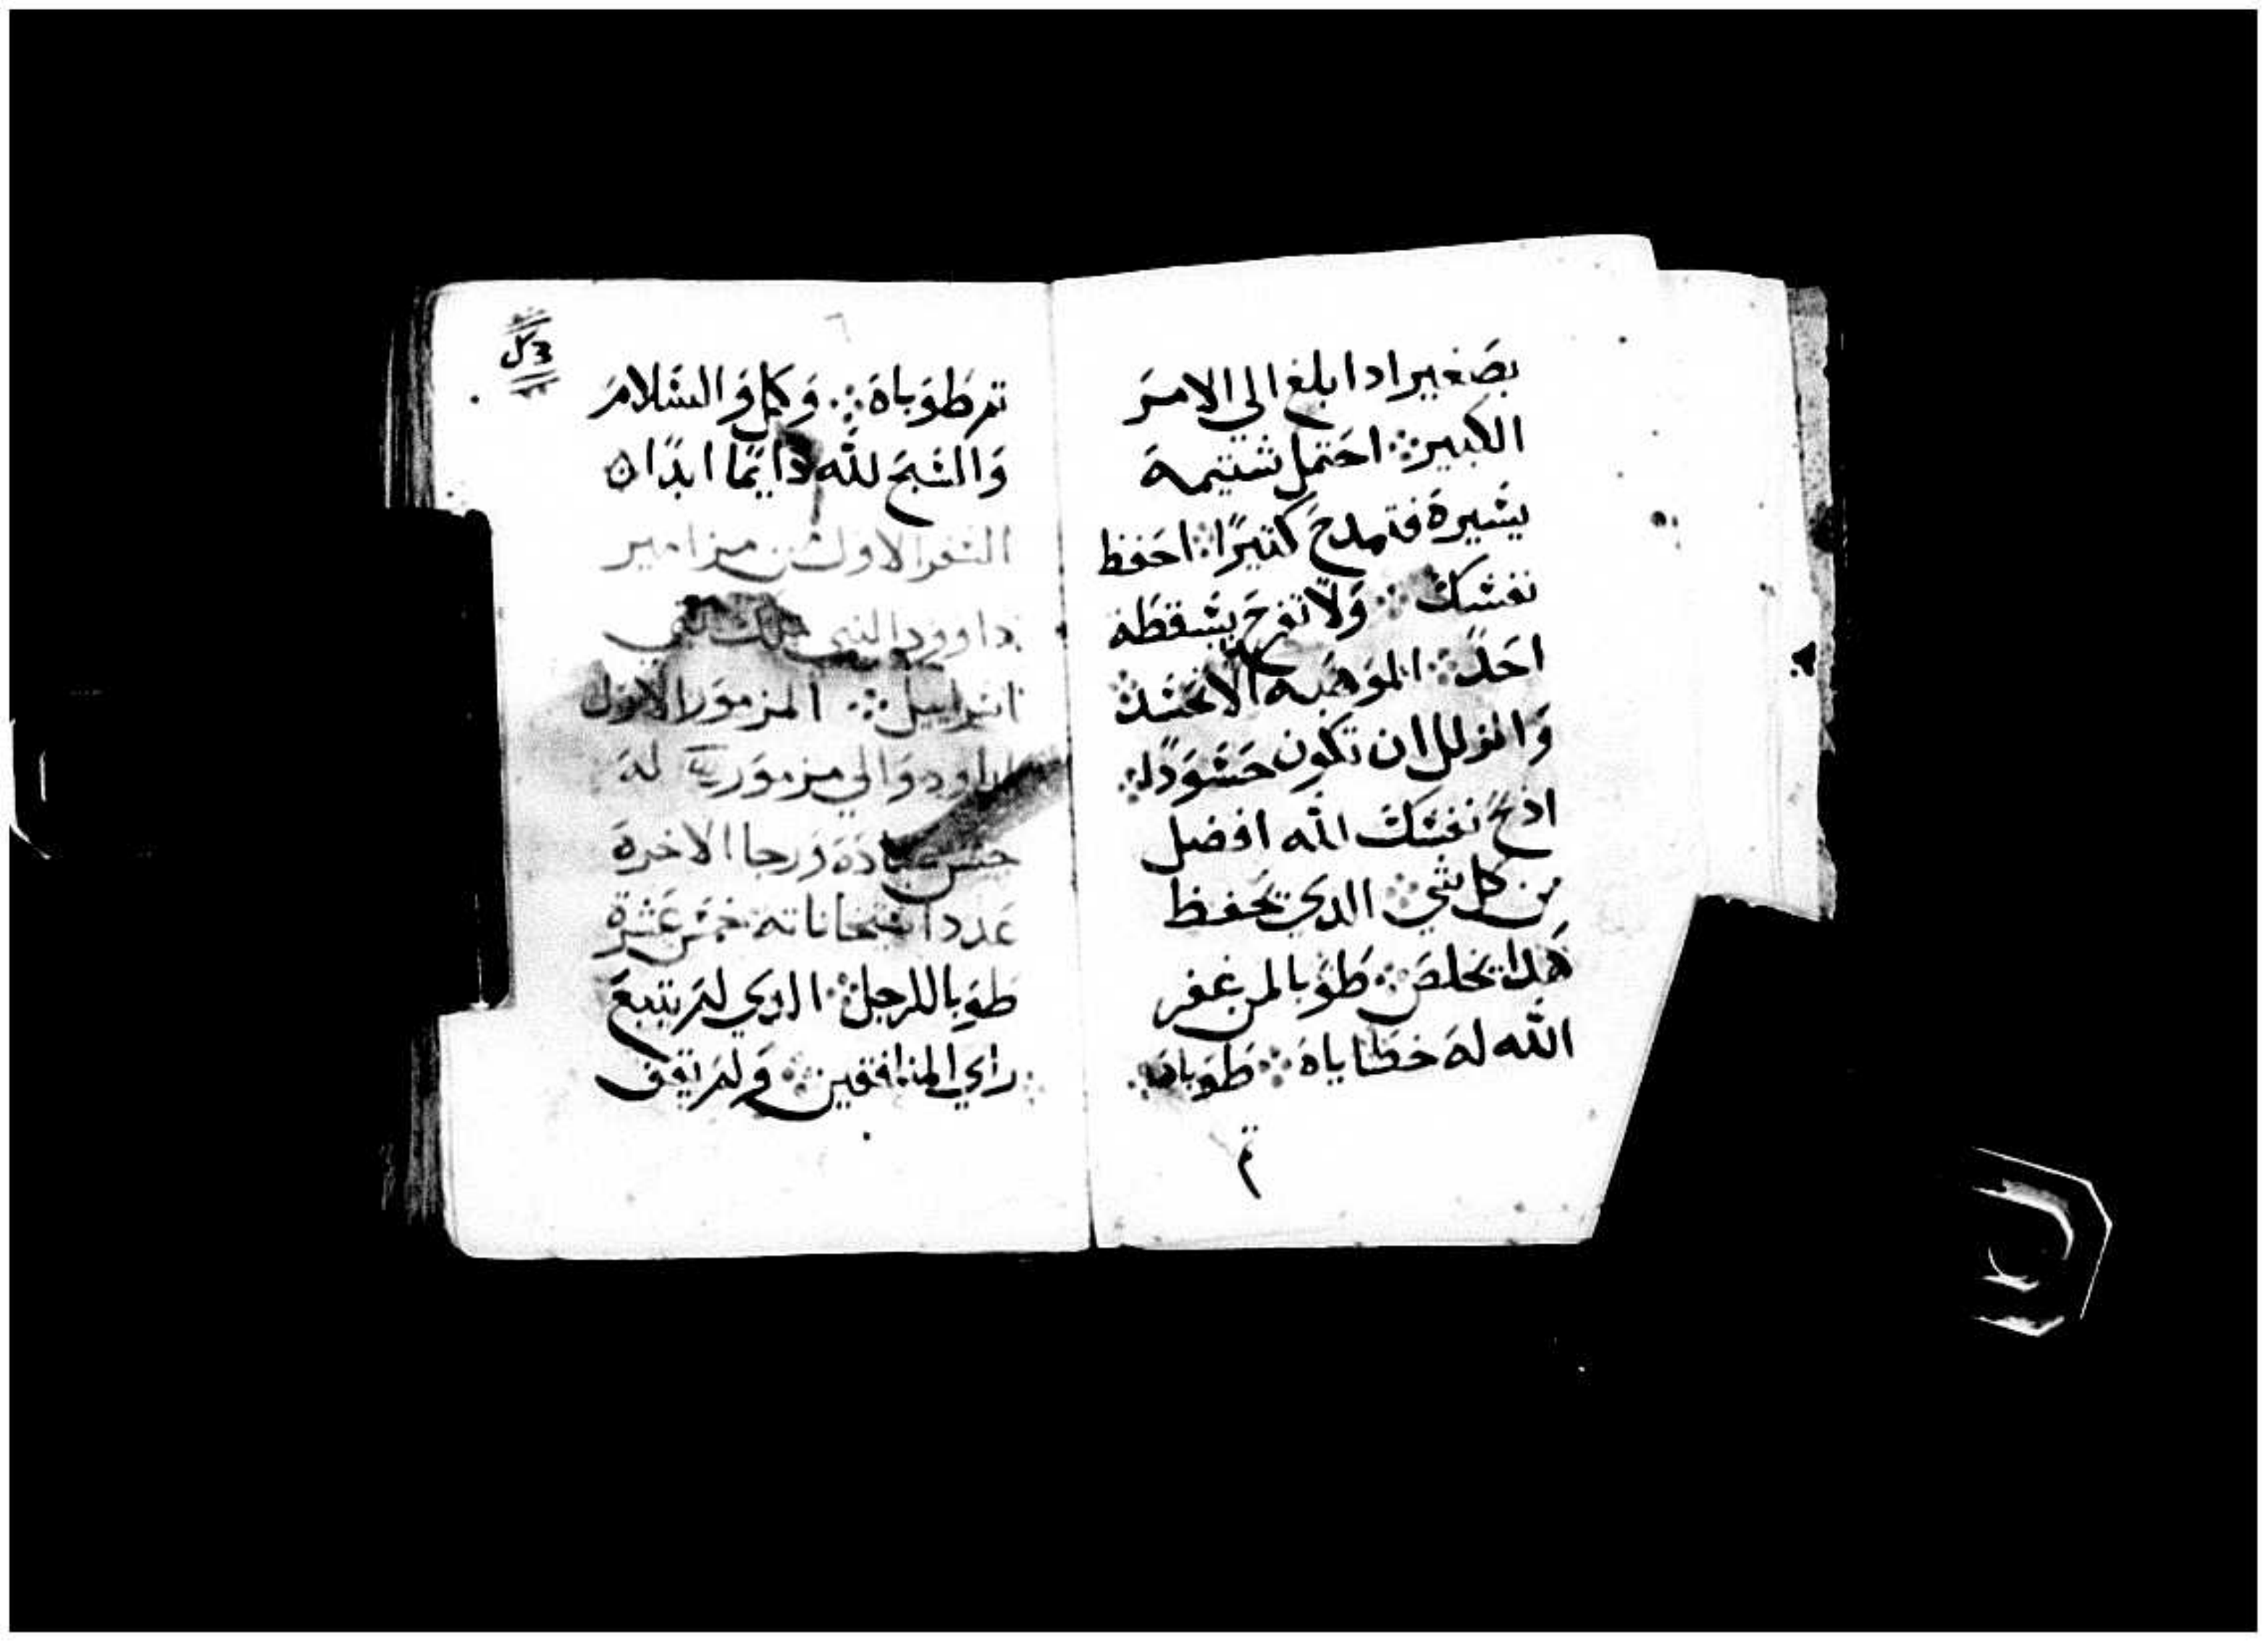 بصَغيرادا ابلغ الى الامرَ
الكبير ۞ احتمل شتيمة
يسَيرة فتمدحَ كثيرًا ۞ احَفظ
نفسَك ۞ وَلا تفرحَ بسَقطة
احَد ۞ الموَهَبه الا تحسَد
وَالزلل ان تكون حسَوَدًا ۞
ادبح نفسَك الله افضل
من كل شي ۞ الدي يحَفظ
هَدا يخلصَ ۞ طوَبا لمن غفر
الله لهَ خطاياهَ ۞ طوَباهَ ۞
تم
تم طوَباهَ ۞ وَكمل وَالسَلامَ
وَالسَبحَ لله دايمًا ابدًا ه
السفر الاول من مزامير
داوود النبي ملك بني
اسَراييل ۞ المزموَر الاول
لداود وَالي مزموَر لهَ
حسَن عبادَة وَرجا الاخرة
عَدد استحاناته خمسَ عَشرة
طوَبا للرجل ۞ الدي لم يتبعَ
راي المنافقين ۞ وَلم يقف